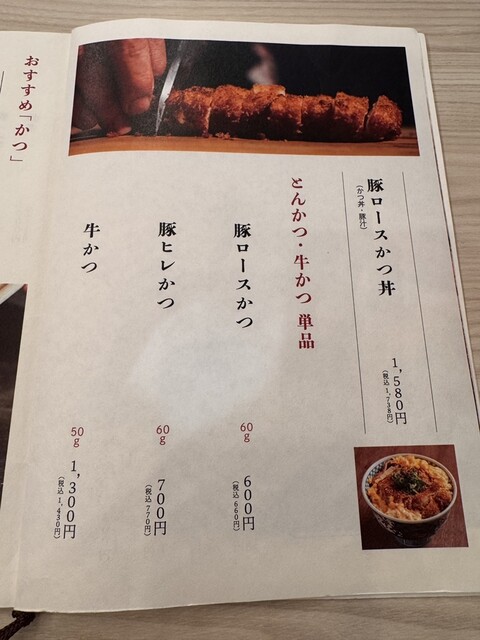 豚ロースかつ丼
(かつ丼・豚汁)
1,580円
(税込1,738円)
とんかつ・牛かつ 単品
豚ロースかつ
60g
600円
(税込 660円)
豚ヒレかつ
60g
700円
(税込 770円)
牛かつ
50g
1,300円
(税込1,430円)
おすすめ「かつ」